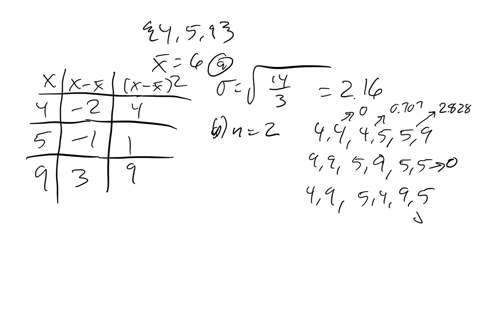 {4, 5, 9}
x̄ = 6 ⓐ
x | x-x̄ | (x-x̄)²
4 | -2 | 4
5 | -1 | 1
9 | 3 | 9
σ = √(14/3) = 2.16
b) n = 2
0 0.707 2.828
4,4, 4,5, 5,9
9,9, 5,9, 5,5 → 0
4,9, 5,4, 9,5